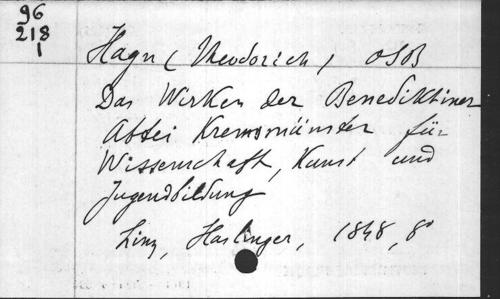 96
218
1
Hagn (Theodorich) OSB
Das Wirken der Benediktiner
Abtei Kremsmünster für
Wissenschaft, Kunst und
Jugendbildung
Linz, Haslinger, 1848, 8°